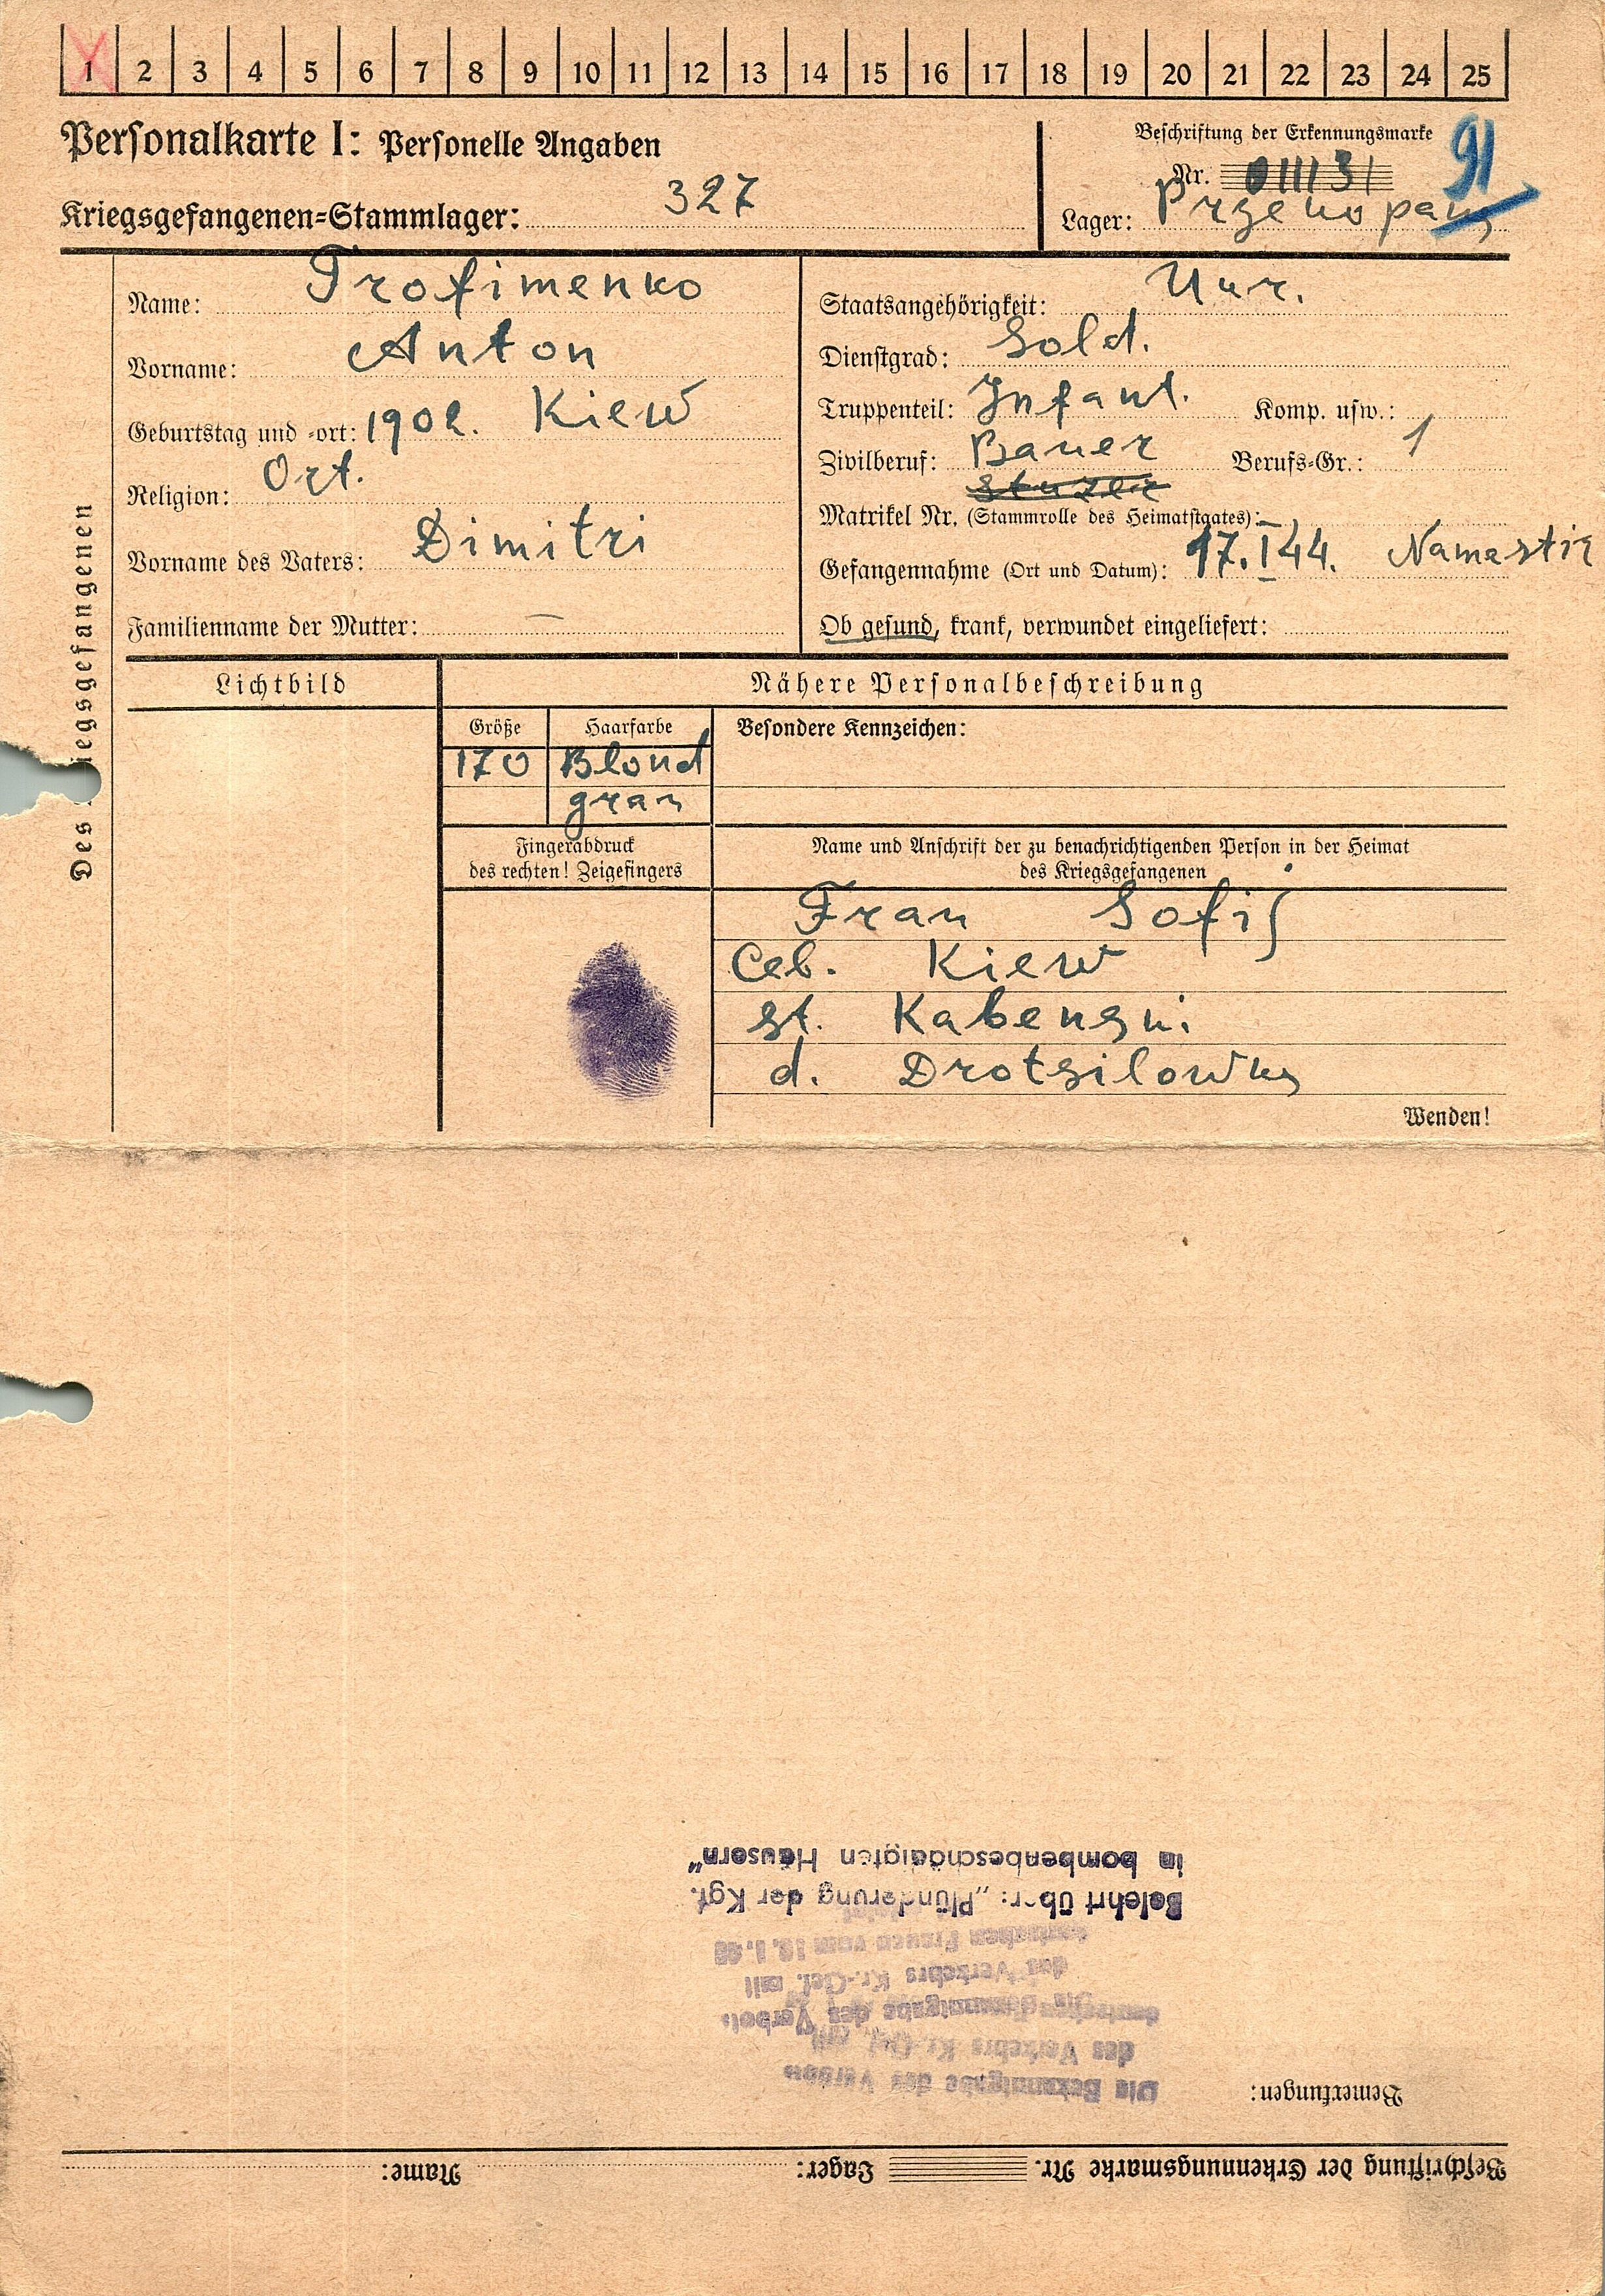 1 2 3 4 5 6 7 8 9 10 11 12 13 14 15 16 17 18 19 20 21 22 23 24 25
Personalkarte I: Personelle Angaben
Beschriftung der Erkennungsmarke
91
Nr.
Kriegsgefangenen-Stammlager: 327
Lager:
Des Kriegsgefangenen
Name: Trofimenko
Vorname: Anton
Geburtstag und -ort: 1902. Kiew
Religion: Ort.
Vorname des Vaters: Dimitri
Familienname der Mutter: —
Staatsangehörigkeit: Ukr.
Dienstgrad: Sold.
Truppenteil: Infant. Komp. usw.:
Zivilberuf: Bauer Berufs-Gr.: 1
Matrikel Nr. (Stammrolle des Heimatstaates): —
Gefangennahme (Ort und Datum): 17.I 44.
Ob gesund, krank, verwundet eingeliefert:
Lichtbild
Nähere Personalbeschreibung
Größe Haarfarbe Besondere Kennzeichen:
170 Blond
grau
Fingerabdruck
des rechten! Zeigefingers
Name und Anschrift der zu benachrichtigenden Person in der Heimat
des Kriegsgefangenen
Frau Sofij
Kiew
st.
d.
Wenden!
in bombenbeschädigten Häusern"
Belehrt über: „Plünderung der Kgf.
deutschen Frauen vom
des Verkehrs Kr.-Gef. mit
Die Bekanntgabe des Verbots
des Verkehrs Kr.-Gef. mit
Die Bekanntgabe des Verbots
Bemerkungen:
Beschriftung der Erkennungsmarke Nr. Lager: Name: